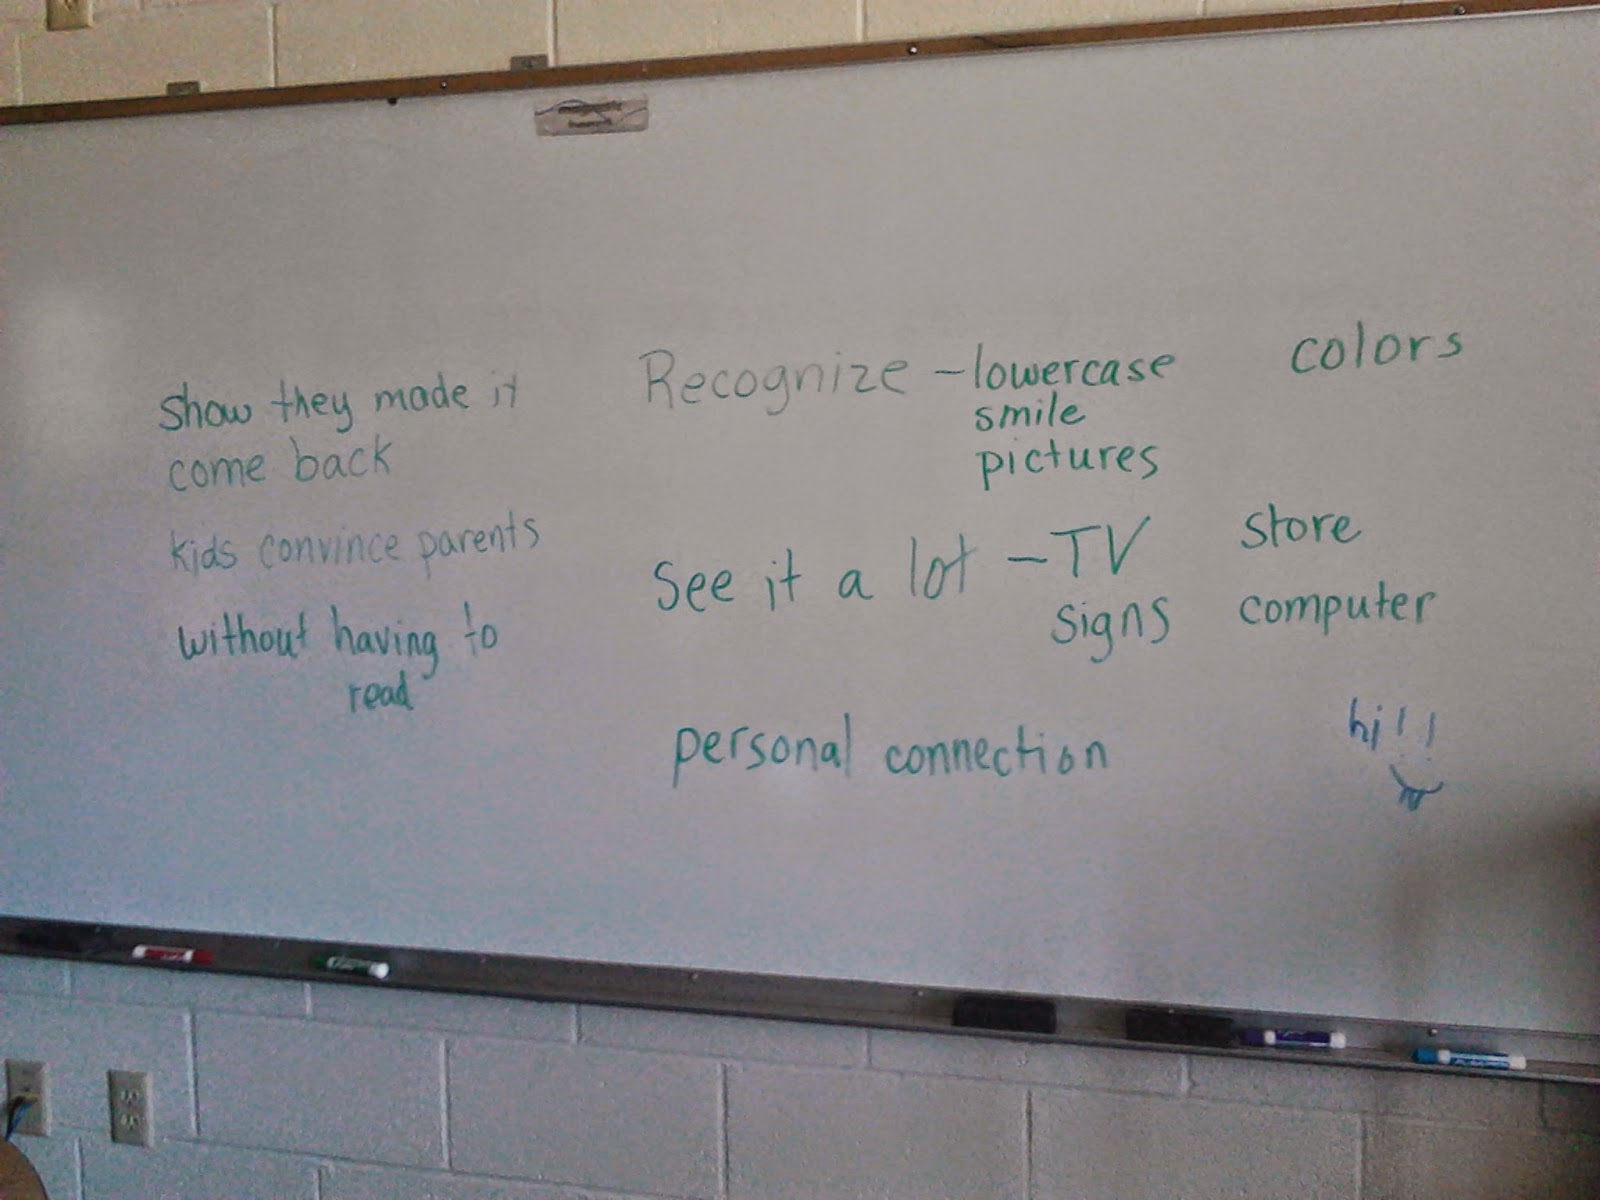 show they made it
come back
kids convince parents
without having to
read
Recognize - lowercase colors
smile
pictures
See it a lot - TV store
signs computer
personal connection
hi!!